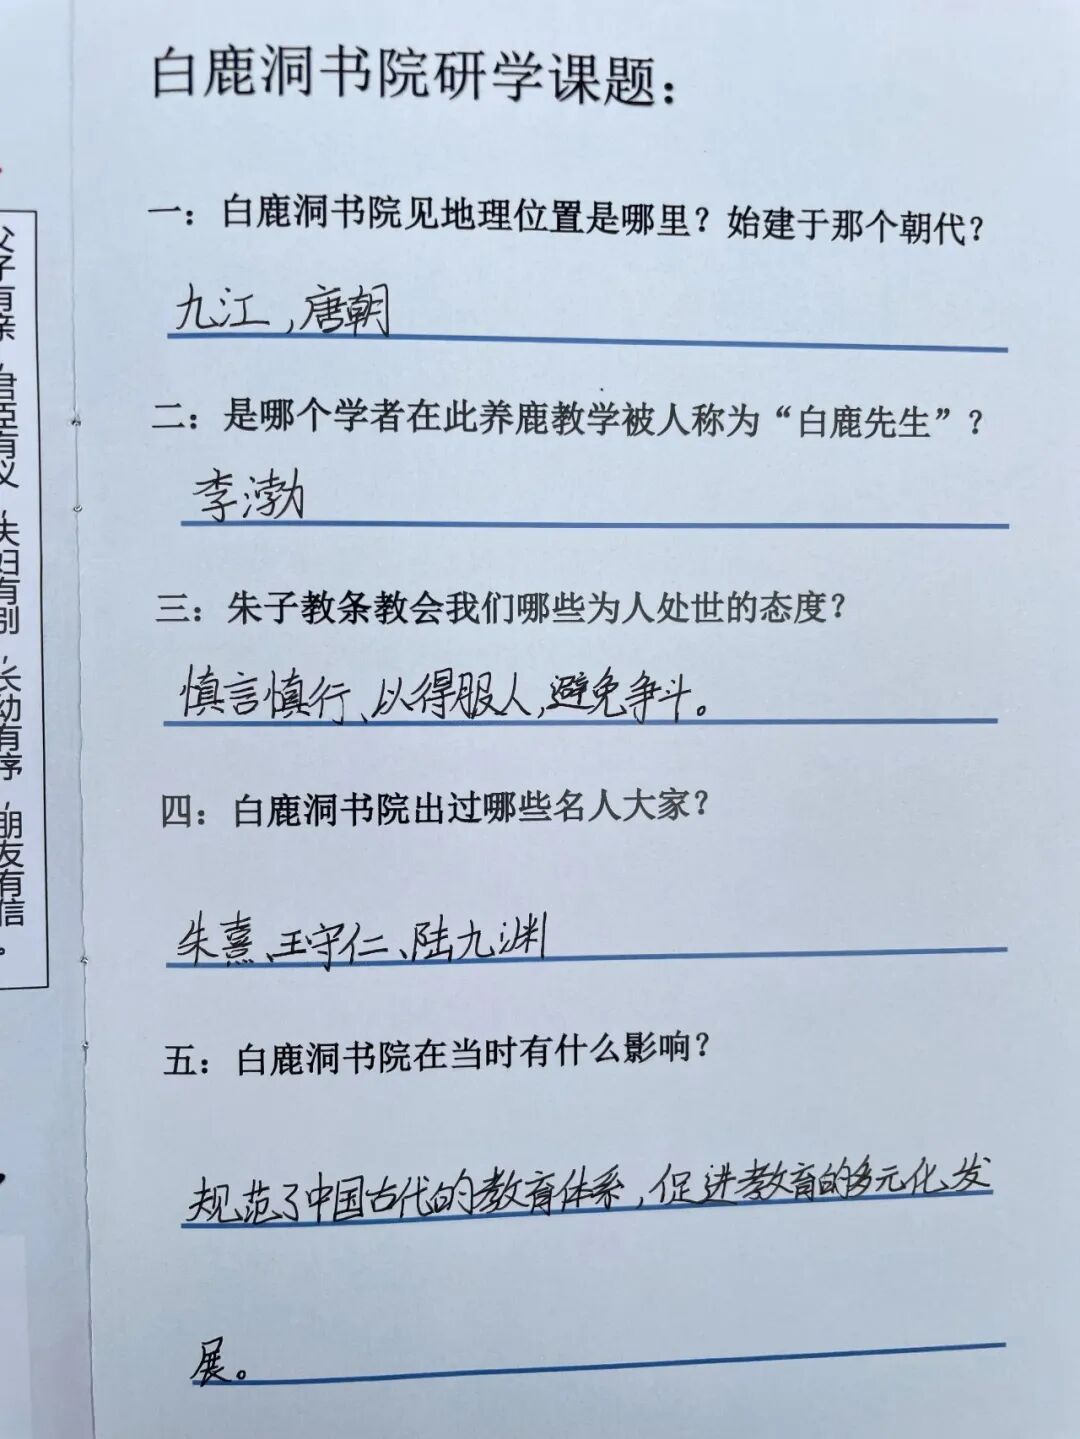 白鹿洞书院研学课题：
一：白鹿洞书院见地理位置是哪里？始建于那个朝代？
九江，唐朝
二：是哪个学者在此养鹿教学被人称为“白鹿先生”？
李渤
三：朱子教条教会我们哪些为人处世的态度？
慎言慎行、以得服人，避免争斗。
四：白鹿洞书院出过哪些名人大家？
朱熹、王守仁、陆九渊
五：白鹿洞书院在当时有什么影响？
规范了中国古代的教育体系，促进教育的多元化发
展。
父子有亲，君臣有义，夫妇有别，长幼有序，朋友有信。